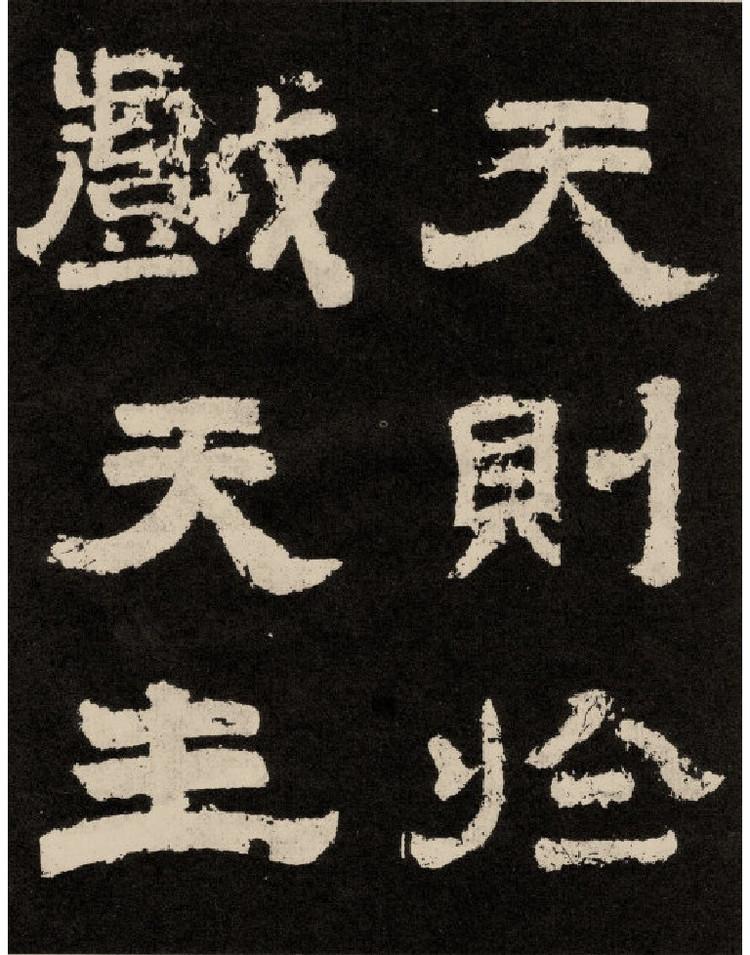 天則於
戲天生